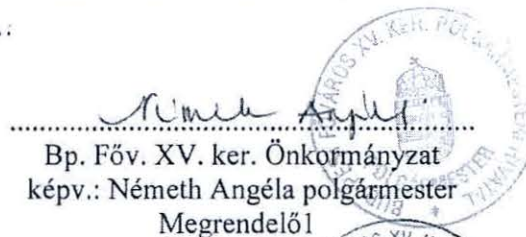 Németh Angéla
Bp. Főv. XV. ker. Önkormányzat
képv.: Németh Angéla polgármester
Megrendelő1